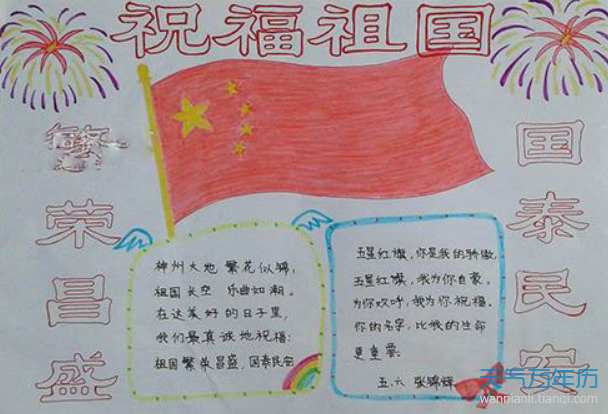 祝福祖国
繁荣昌盛
神州大地 繁花似锦,
祖国长空 乐曲如潮。
在这美好的日子里,
我们最真诚地祝福:
祖国繁荣昌盛,国泰民安
五星红旗,你是我的骄傲,
五星红旗,我为你自豪。
为你欢呼,我为你祝福。
你的名字,比我的生命
更重要。
五.六 张锦辉
国泰民安
天气万年历
wannianli.tianqi.com